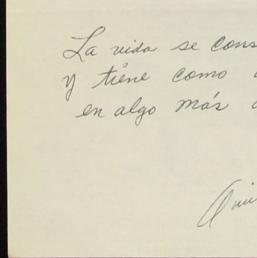 La vida se cons
y tiene como
en algo más a